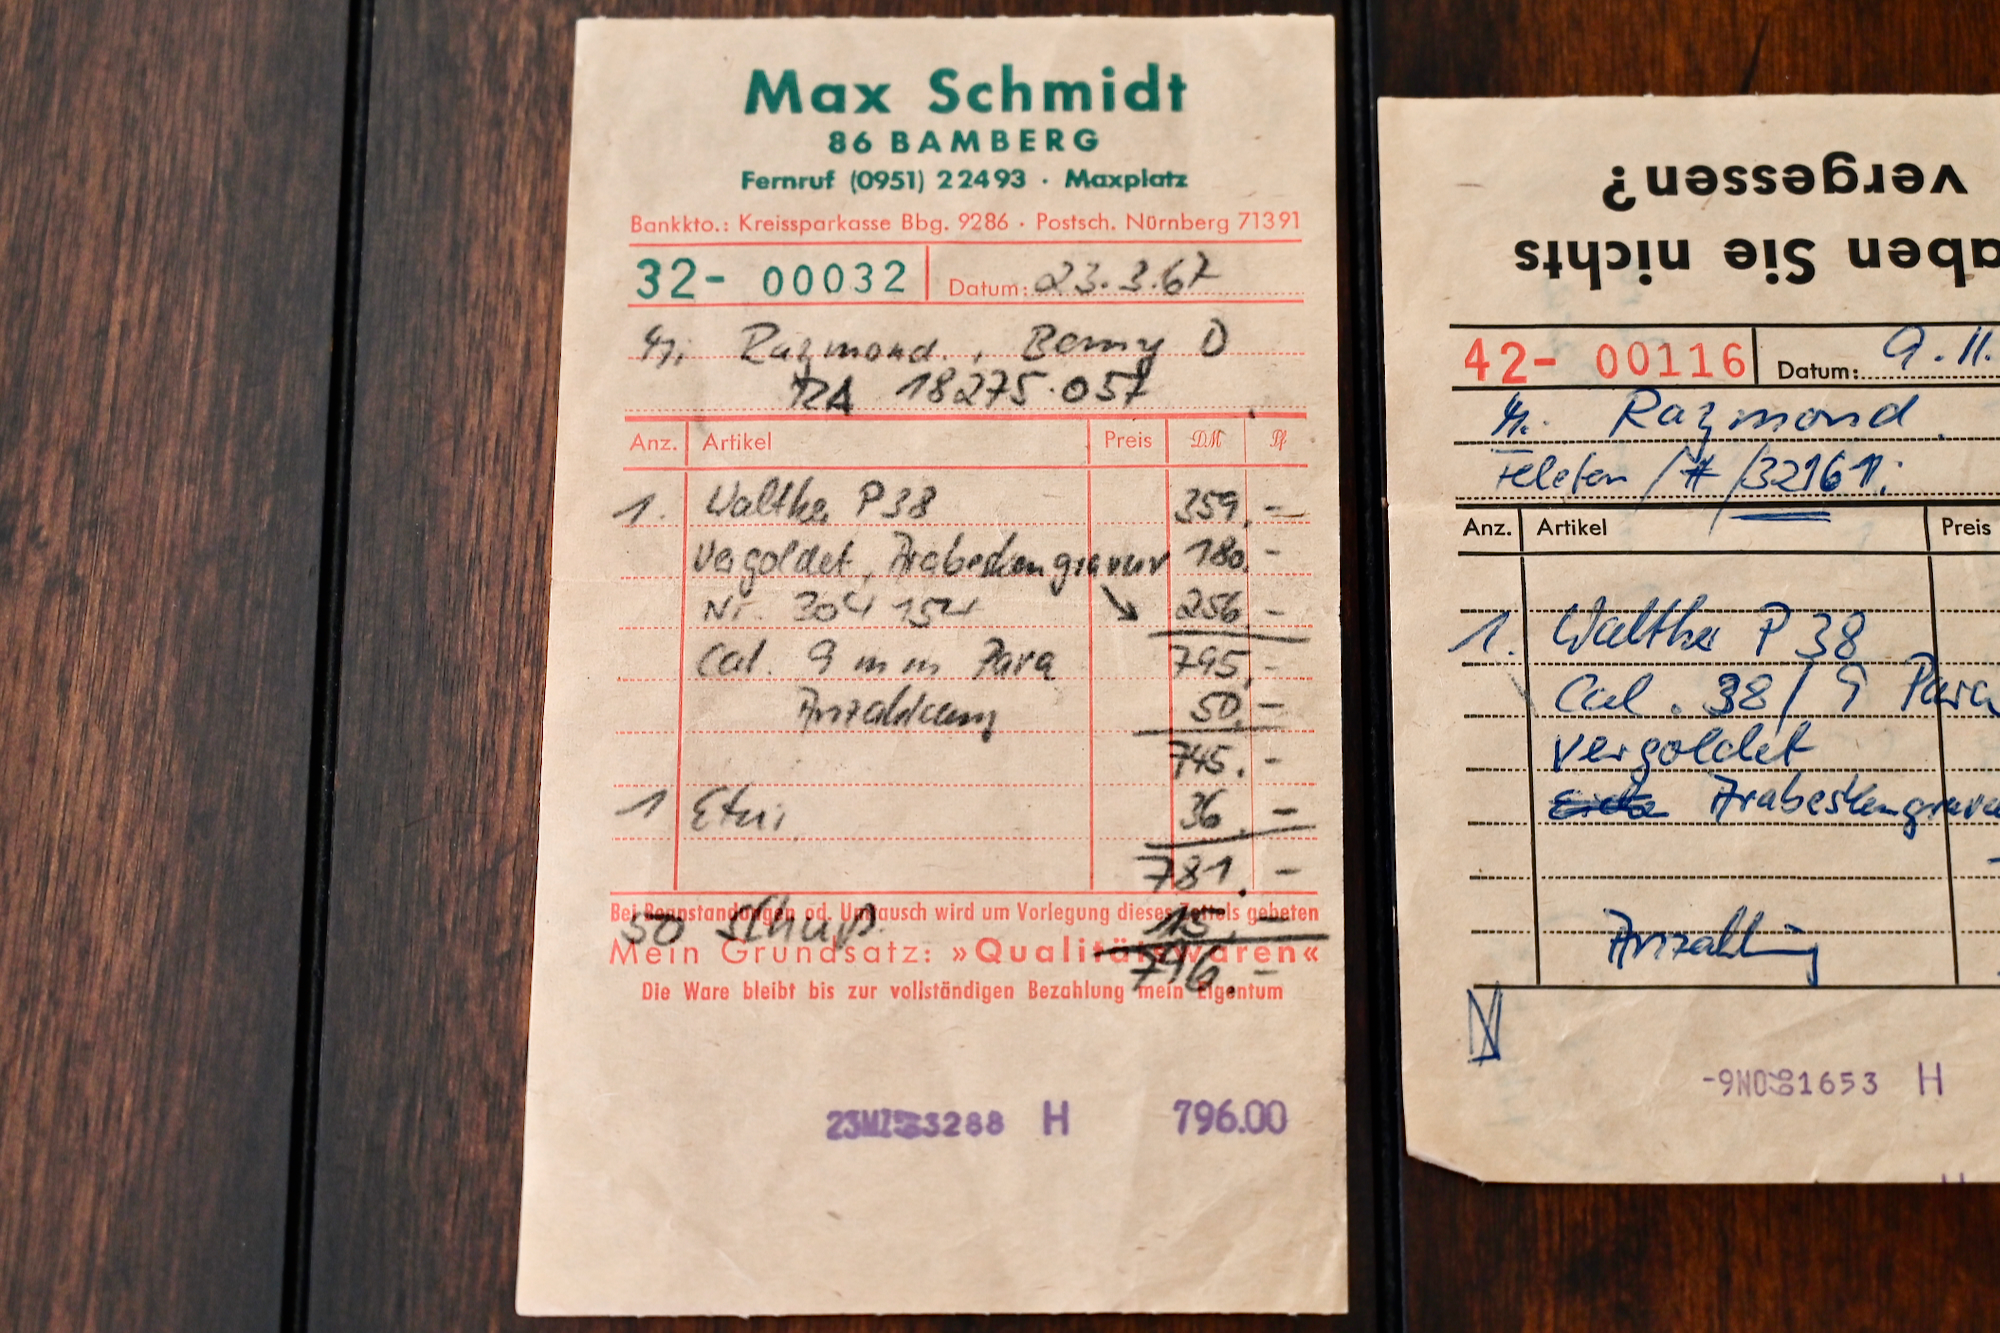 Max Schmidt
86 BAMBERG
Fernruf (0951) 22493 · Maxplatz
Bankkto.: Kreissparkasse Bbg. 9286 · Postsch. Nürnberg 71391
32- 00032 Datum: 23.3.67
Raymond, Benny D
RA 18275·057
Anz. Artikel Preis DM Pf
1. Walther P38 359.-
vergoldet, Arabeskengravur 180.-
Nr. 304 154 256 -
Cal. 9 mm Para 795.-
Anzahlung 50.-
745.-
1 Etui 36.-
781.-
Bei Beanstandungen od. Umtausch wird um Vorlegung dieses Zettels gebeten
50 Schuß 15.-
Mein Grundsatz: »Qualitätswaren«
796.-
Die Ware bleibt bis zur vollständigen Bezahlung mein Eigentum
3288 H 796.00
aben Sie nichts
vergessen?
42- 00116 Datum: 9.11.
Raymond
Telefon /#/32161.
Anz. Artikel Preis
1. Walther P38
Cal. 38/9 Para
vergoldet
Arabeskengravu
Anzahlung
1653 H